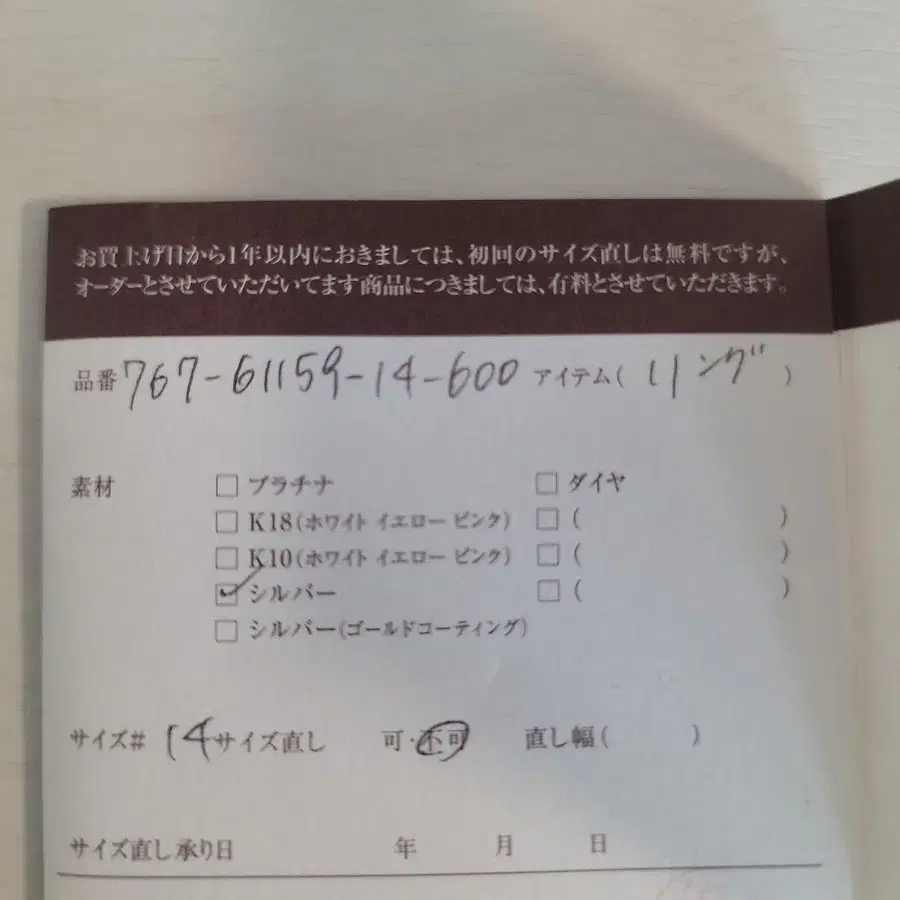 お買上げ日から1年以内におきましては、初回のサイズ直しは無料ですが、
オーダーとさせていただいてます商品につきましては、有料とさせていただきます。
品番 767-61159-14-600 アイテム( リング )
素材 □ プラチナ □ ダイヤ
□ K18(ホワイト イエロー ピンク) □ ( )
□ K10(ホワイト イエロー ピンク) □ ( )
☑ シルバー □ ( )
□ シルバー(ゴールドコーティング)
サイズ# 14 サイズ直し 可・不可 直し幅( )
サイズ直し承り日 年 月 日